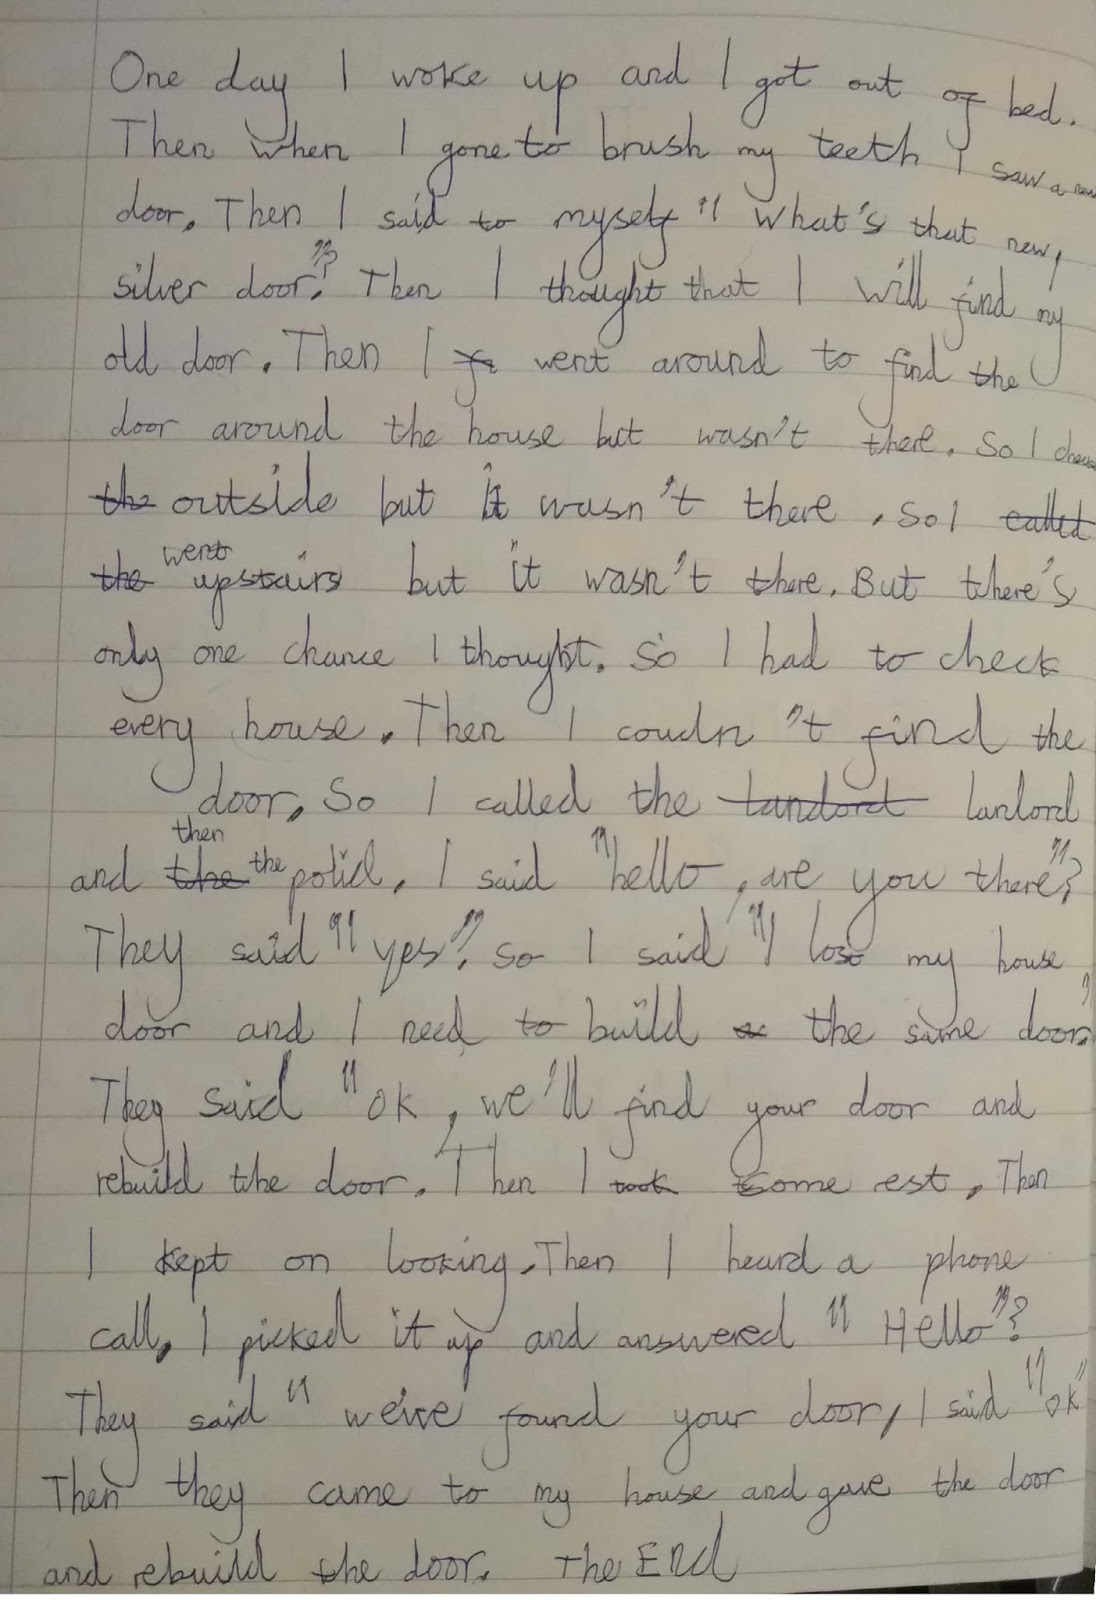 One day I woke up and I got out of bed.
Then when I gone to brush my teeth I saw a new
door. Then I said to myself " What's that new,
silver door"? Then I thought that I will find my
old door. Then I went around to find the
door around the house but wasn't there. So I
outside but it wasn't there. So I
went
upstairs but it wasn't there. But there's
only one chance I thought. So I had to check
every house. Then I coudn't find the
door, So I called the lanlord
then
and the polid. I said "hello, are you there"?
They said "yes". So I said "I lose my house
door and I need to build the same door."
They said "OK, we'll find your door and
rebuild the door. Then I took some rest. Then
I kept on looking. Then I heard a phone
call, I picked it up and answered "Hello"?
They said " we've found your door, I said "ok"
Then they came to my house and gave the door
and rebuild the door. The End